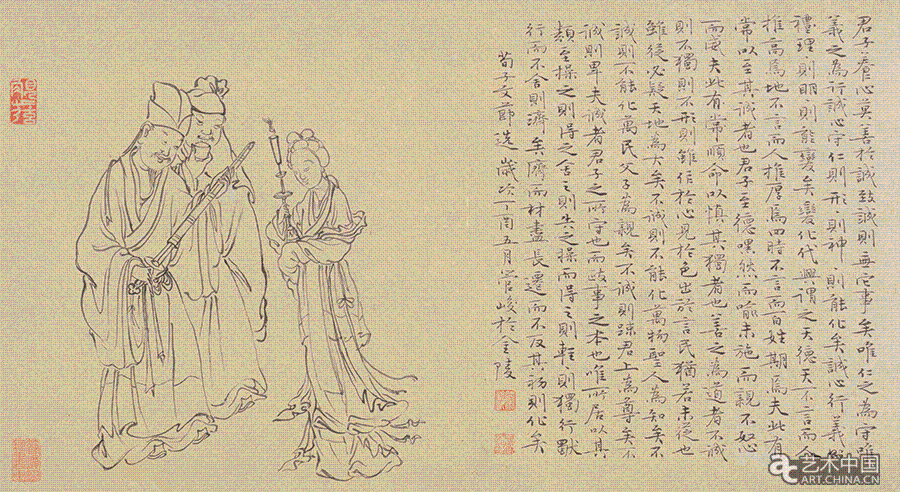 君子養心莫善於誠致誠則無它事矣唯仁之為守唯
義之為行誠心守仁則形〻則神〻則能化矣誠心行義則
理〻則明〻則能變矣變化代興謂之天德天不言而人
推高焉地不言而人推厚焉四時不言而百姓期焉夫此有
常以至其誠者也君子至德嘿然而喻未施而親不怒
而威夫此有常順命以慎其獨者也善之為道者不誠
則不獨則不形則雖作於心見於色出於言民猶若未從也
雖從必疑天地為大矣不誠則不能化萬物聖人為知矣不
誠則不能化萬民父子為親矣不誠則疎君上為尊矣不
誠則卑夫誠者君子之所守也而政事之本也唯所居以其
類至操之則得之舍之則失之操而得之則輕〻則獨行獸
行而不舍則濟矣濟而材盡長遷而不反其初則化矣
荀子文節選 歲次丁酉五月管峻於金陵
艺术中国
ART.CHINA.CN